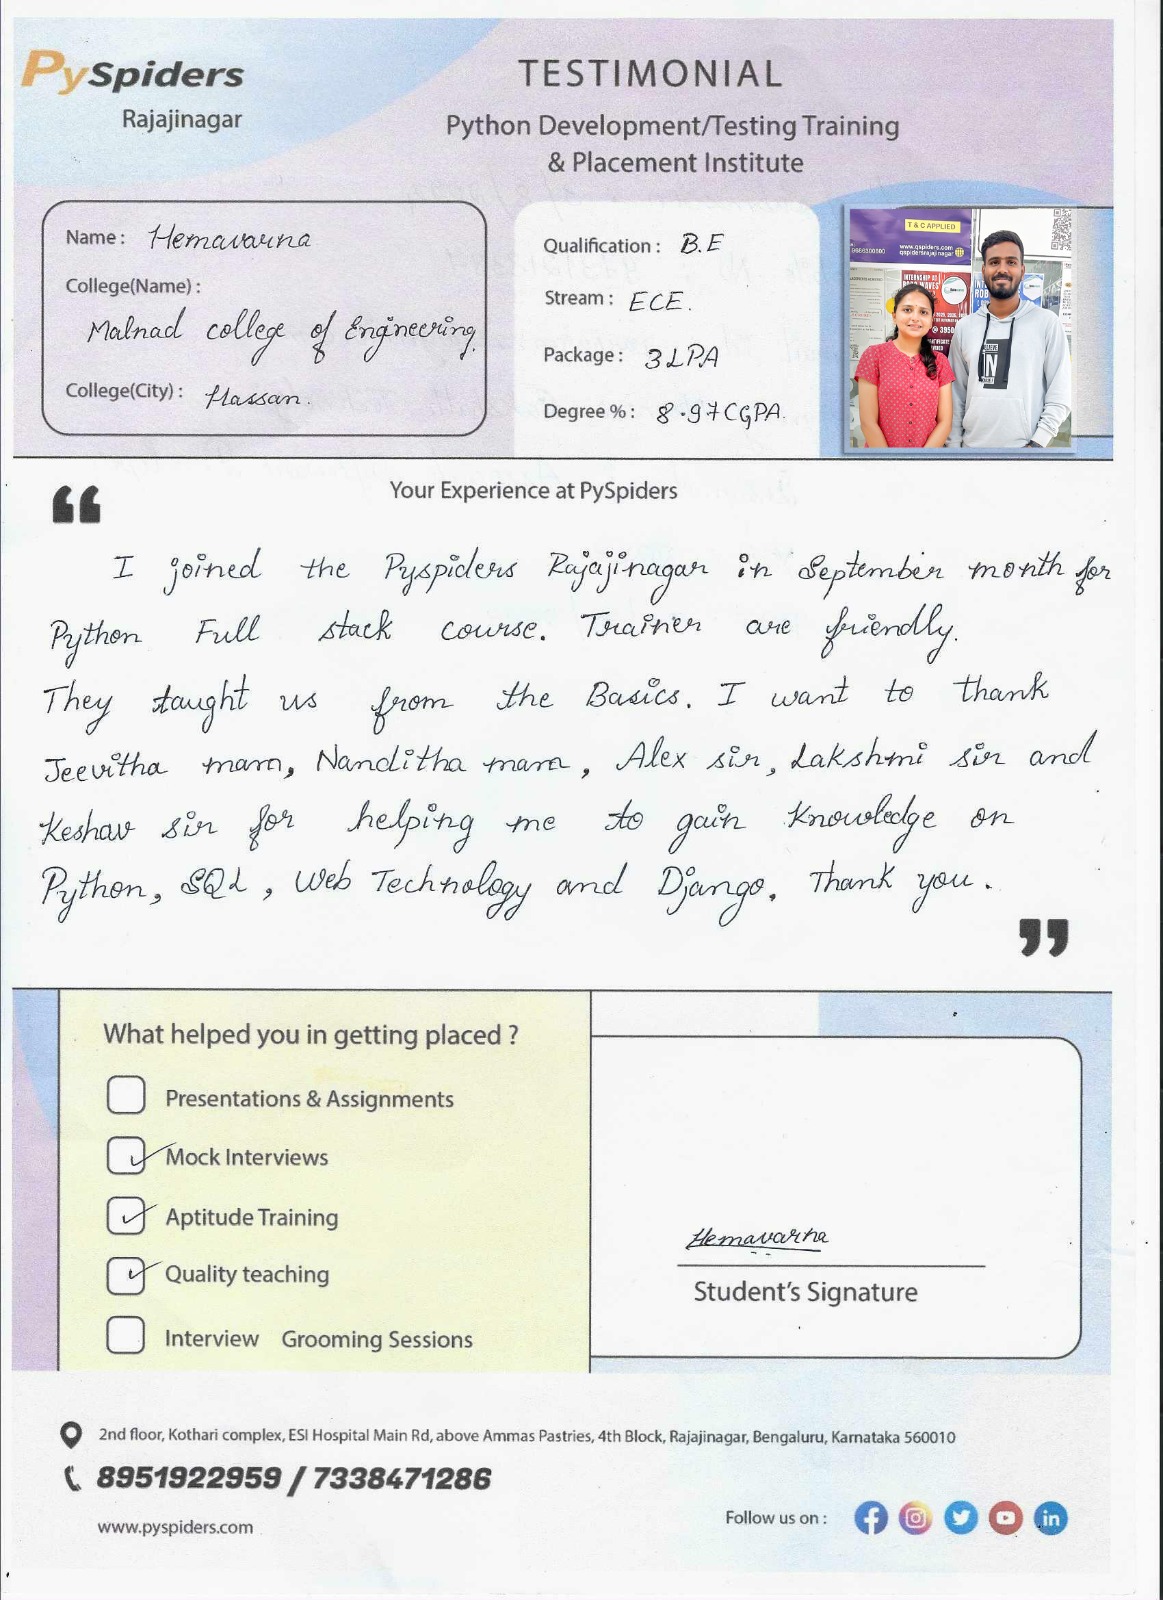 PySpiders
Rajajinagar
TESTIMONIAL
Python Development/Testing Training
& Placement Institute
Name : Hemavarna
College(Name) :
Malnad college of Engineering
College(City) : Hassan.
Qualification : B.E
Stream : ECE.
Package : 3LPA
Degree % : 8.97CGPA.
T & C APPLIED
www.qspiders.com
Your Experience at PySpiders
I joined the Pyspiders Rajajinagar in September month for
Python Full stack course. Trainer are friendly.
They taught us from the Basics. I want to thank
Jeevitha mam, Nanditha mam, Alex sir, Lakshmi sir and
Keshav sir for helping me to gain knowledge on
Python, SQL, Web Technology and Django. Thank you.
What helped you in getting placed ?
Presentations & Assignments
Mock Interviews
Aptitude Training
Quality teaching
Interview Grooming Sessions
Hemavarna
Student's Signature
2nd floor, Kothari complex, ESI Hospital Main Rd, above Ammas Pastries, 4th Block, Rajajinagar, Bengaluru, Karnataka 560010
8951922959 / 7338471286
www.pyspiders.com
Follow us on :